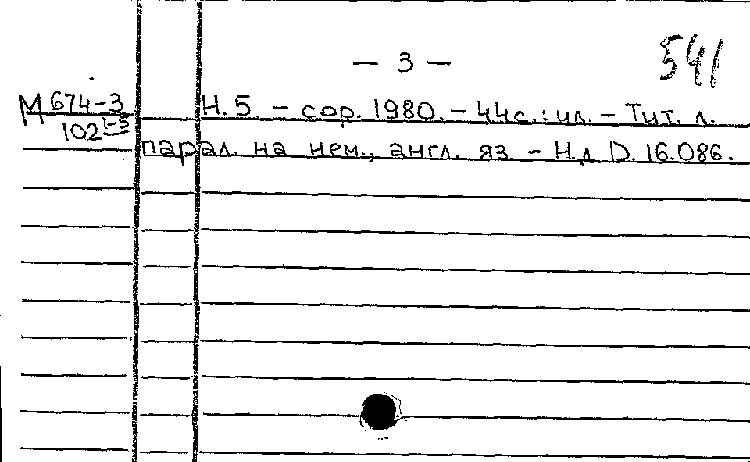 — 3 —
541
М 674-3
102 1-5
Н. 5. – cop. 1980. – 44с.: ил. – Тит. л.
парал. на нем., англ. яз – Н.д D. 16.086.